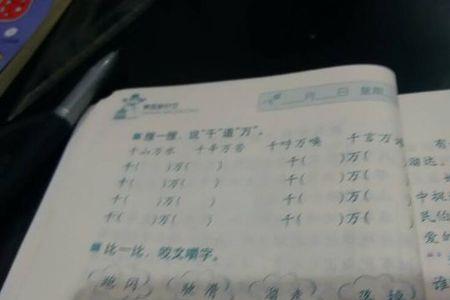 月 日 星期
搜一搜，说“千”道“万”。
千山万水 千辛万苦 千呼万唤 千言万
千( )万( ) 千( )万(
千( )万( ) 千( )万(
千( )万( ) 千( )万(
千( )万( ) 千( )万(
比一比，咬文嚼字。
有
民伯
爱的
谁